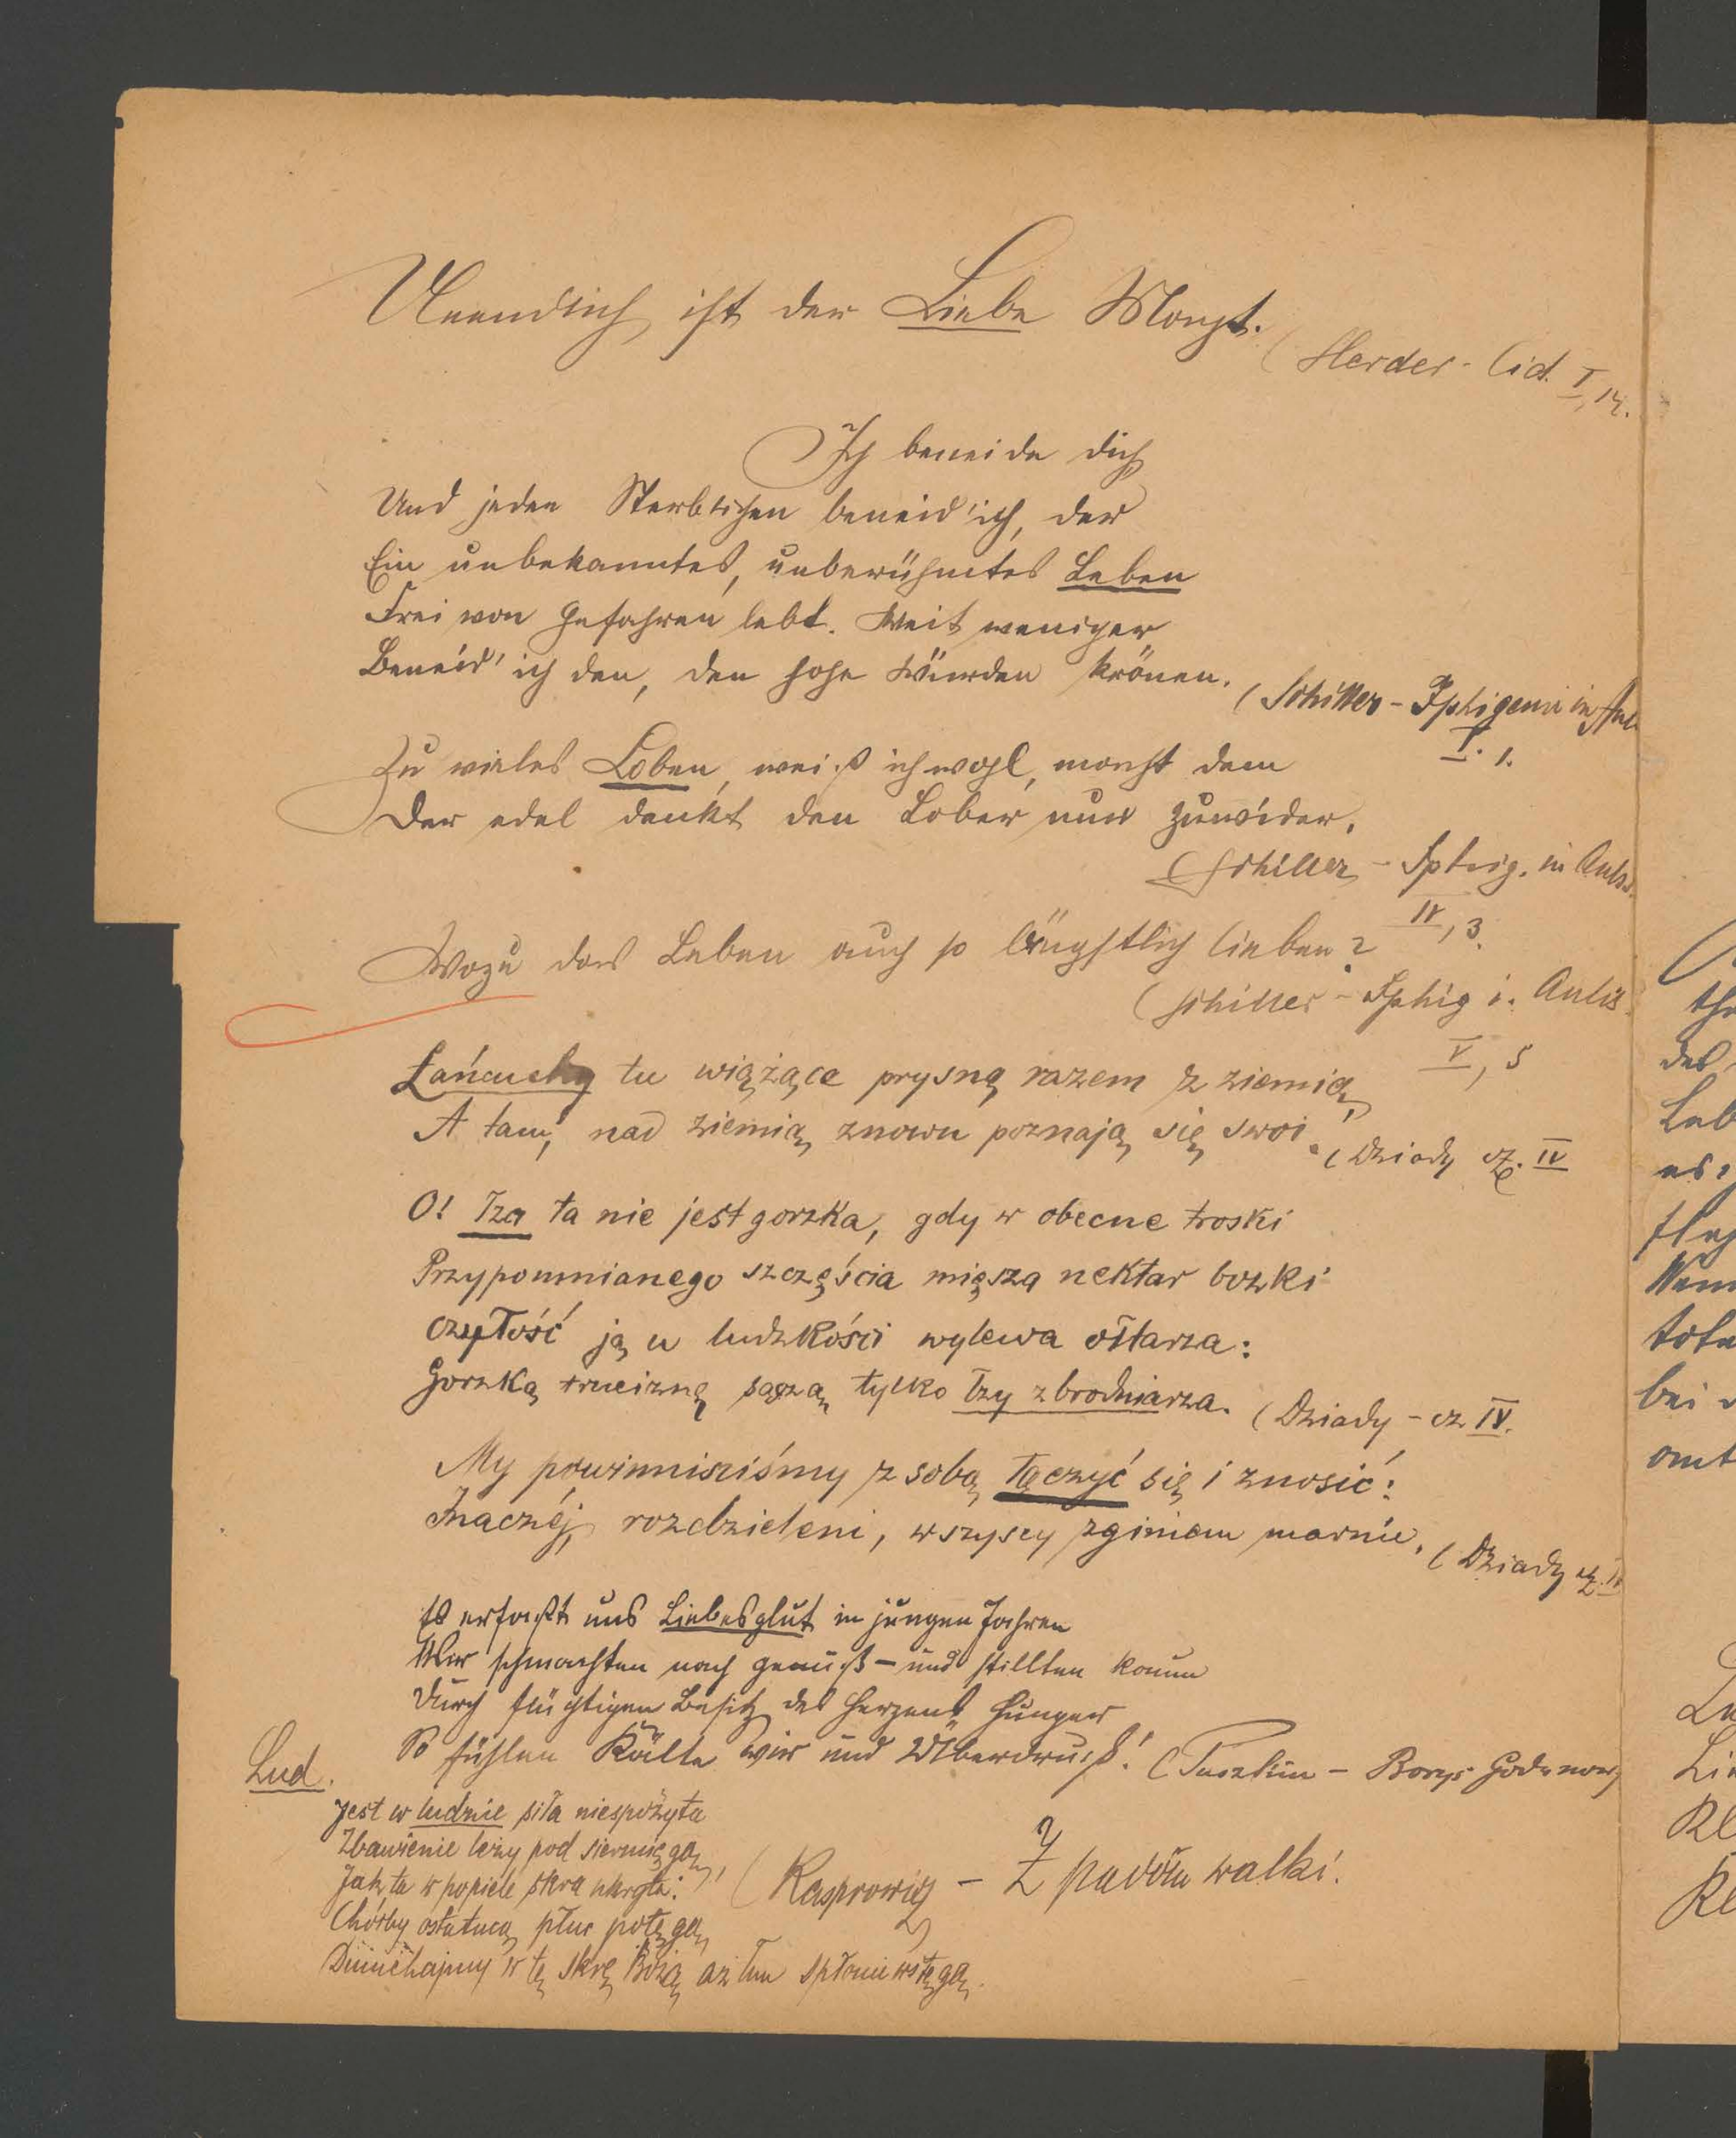 Unendlich ist der Liebe Macht.
(Herder - Cid. I, 14.
Ich beneide dich
Und jeden Sterblichen beneid' ich, der
Ein unbekanntes, unberühmtes Leben
Frei von Gefahren lebt. Weit weniger
Beneid' ich den, den hohe Würden krönen.
(Schiller - Iphigenie in Aul.
I. 1.
Zu vieles Loben, weiß ich wohl, macht dem
Der edel denkt den Lober nur zuwider.
(Schiller - Iphig. in Aulis.
IV, 3.
Wozu das Leben auch so ängstlich lieben?
(Schiller - Iphig i. Aulis
V, 5
Łańcuchy tu wiążące prysną razem z ziemią,
A tam, nad ziemią, znowu poznają się swoi.
(Dziady cz. IV
O! Łza ta nie jest gorzka, gdy w obecne troski
Przypomnianego szczęścia miesza nektar bozki
Czułość ją u ludzkości wylewa ołtarza:
Gorzką trucizną sączą tylko łzy zbrodniarza.
(Dziady - cz IV.
My powinniśmy z sobą łączyć się i znosić:
Inaczéj, rozdzieleni, wszyscy zginiem marnie.
(Dziady cz.
Es erfaßt uns Liebesglut in jungen Jahren
Wir schmachten nach Genuß - und stillten kaum
Durch flüchtigen Besitz des Herzens Hunger
So fühlen Kälte wir und Überdruß!
(Puszkin - Borys Godunow
Lud.
Jest w ludzie siła niespożyta
Zbawienie leży pod siermięgą,
Jak ta w popiele skra ukryta:
Choćby ostatnią płuc potęgą,
Dmuchajmy w tę skrę Bożą aż łun spłonie wstęgą.
(Kasprowicz - Z padołu walki.